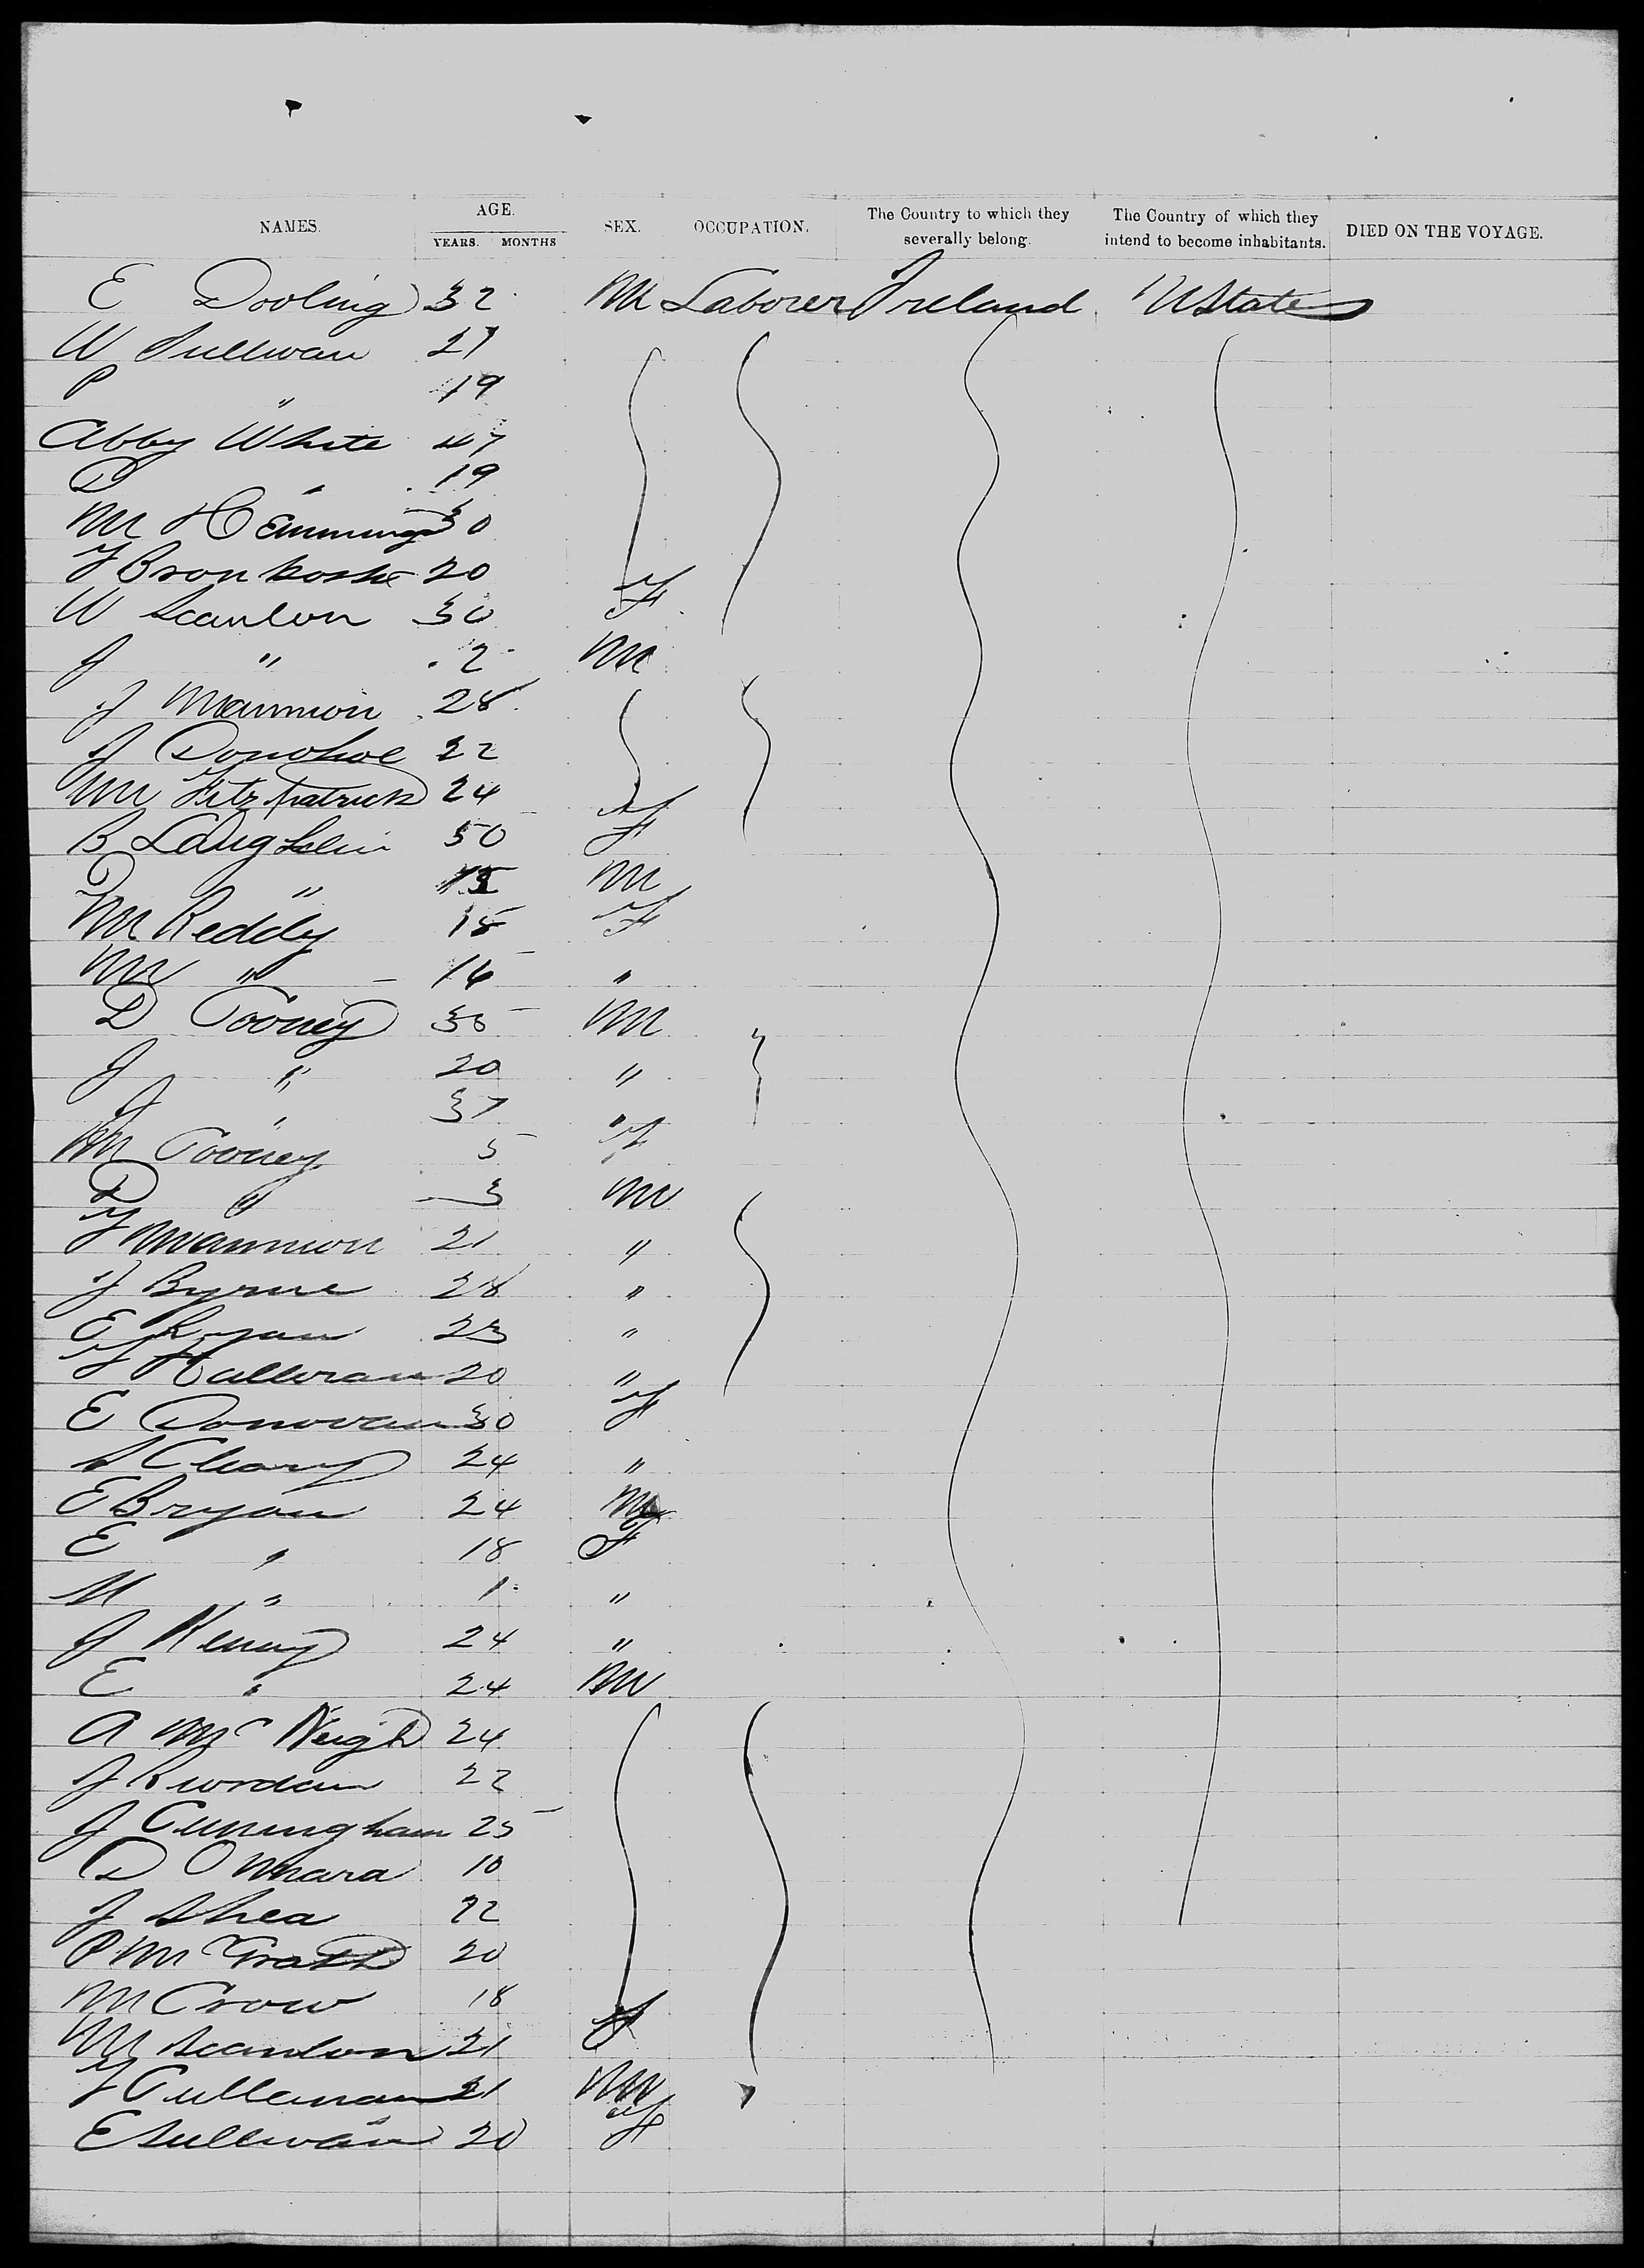 NAMES. AGE. YEARS. MONTHS SEX. OCCUPATION. The Country to which they severally belong. The Country of which they intend to become inhabitants. DIED ON THE VOYAGE.
E Dooling 32 M Laborer Ireland UStates
W Sullivan 27
P " 19
Abby White 47
D " 19
M Hemmings 30
J 20
W Scanlon 30 F
J " 2 M
J Mannion 28
J Donohoe 22
M Fitzpatrick 24
B Laughlin 50 F
" M
M Reddy 18 F
M " 16 "
D Tooney 35 M
J " 20 "
J " 37 "
M Tooney 5 F
P " 3 M
T Mannion 21 "
J Byrne 28 "
E Ryan 23 "
T Halloran 20 "
E Donovan 30 F
S Cleary 24 "
E Bryan 24 M
E " 18 F
M " 1 "
J Kenny 24 "
E " 24 M
A McNeigh 24
J Riordan 22
J Cuningham 25
D OMara 18
J Shea 22
P McGrath 20
M Crow 18
M Scanlon 21 F
T Cullenan 21 M
E Sullivan 20 F